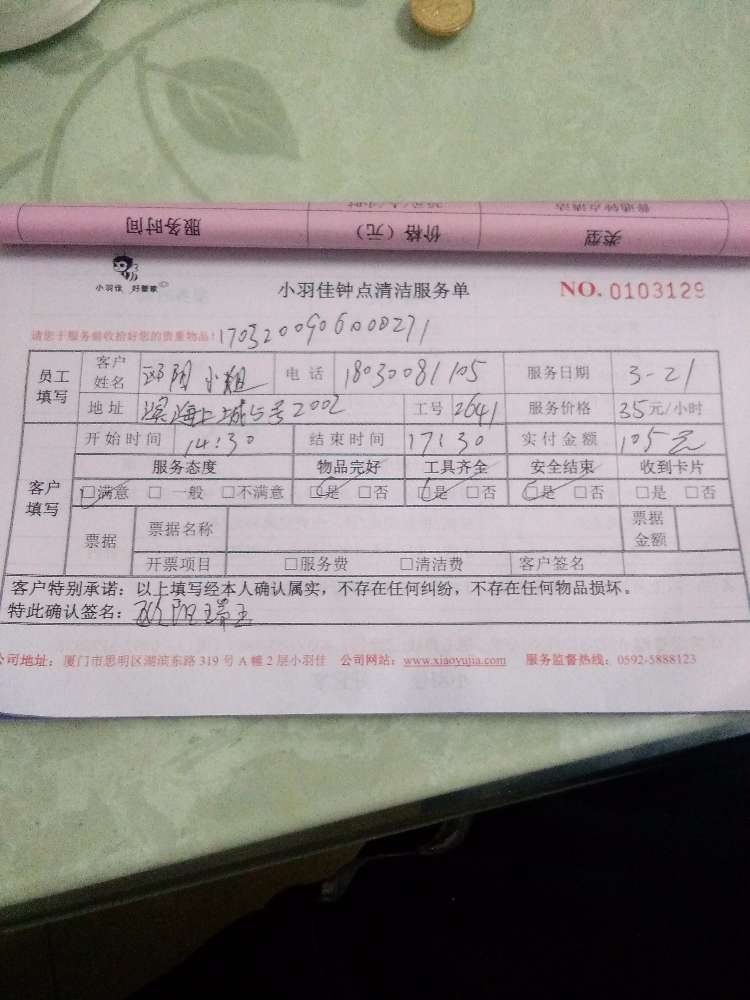 普通钟点清洁
类型 价格（元） 服务时间
小羽佳 好管家
小羽佳钟点清洁服务单 NO. 0103129
请您于服务前收拾好您的贵重物品！
员工填写 客户姓名 欧阳小姐 电话 18030081105 服务日期 3-21
地址 滨海上城5号2002 工号 2641 服务价格 35元/小时
客户填写 开始时间 14:30 结束时间 17:30 实付金额 105元
服务态度 物品完好 工具齐全 安全结束 收到卡片
□满意 □一般 □不满意 □是 □否 □是 □否 □是 □否 □是 □否
票据 票据名称 票据金额
开票项目 □服务费 □清洁费 客户签名
客户特别承诺：以上填写经本人确认属实，不存在任何纠纷，不存在任何物品损坏。
特此确认签名：欧阳
公司地址：厦门市思明区湖滨东路319号A幢2层小羽佳 公司网站：www.xiaoyujia.com 服务监督热线：0592-5888123